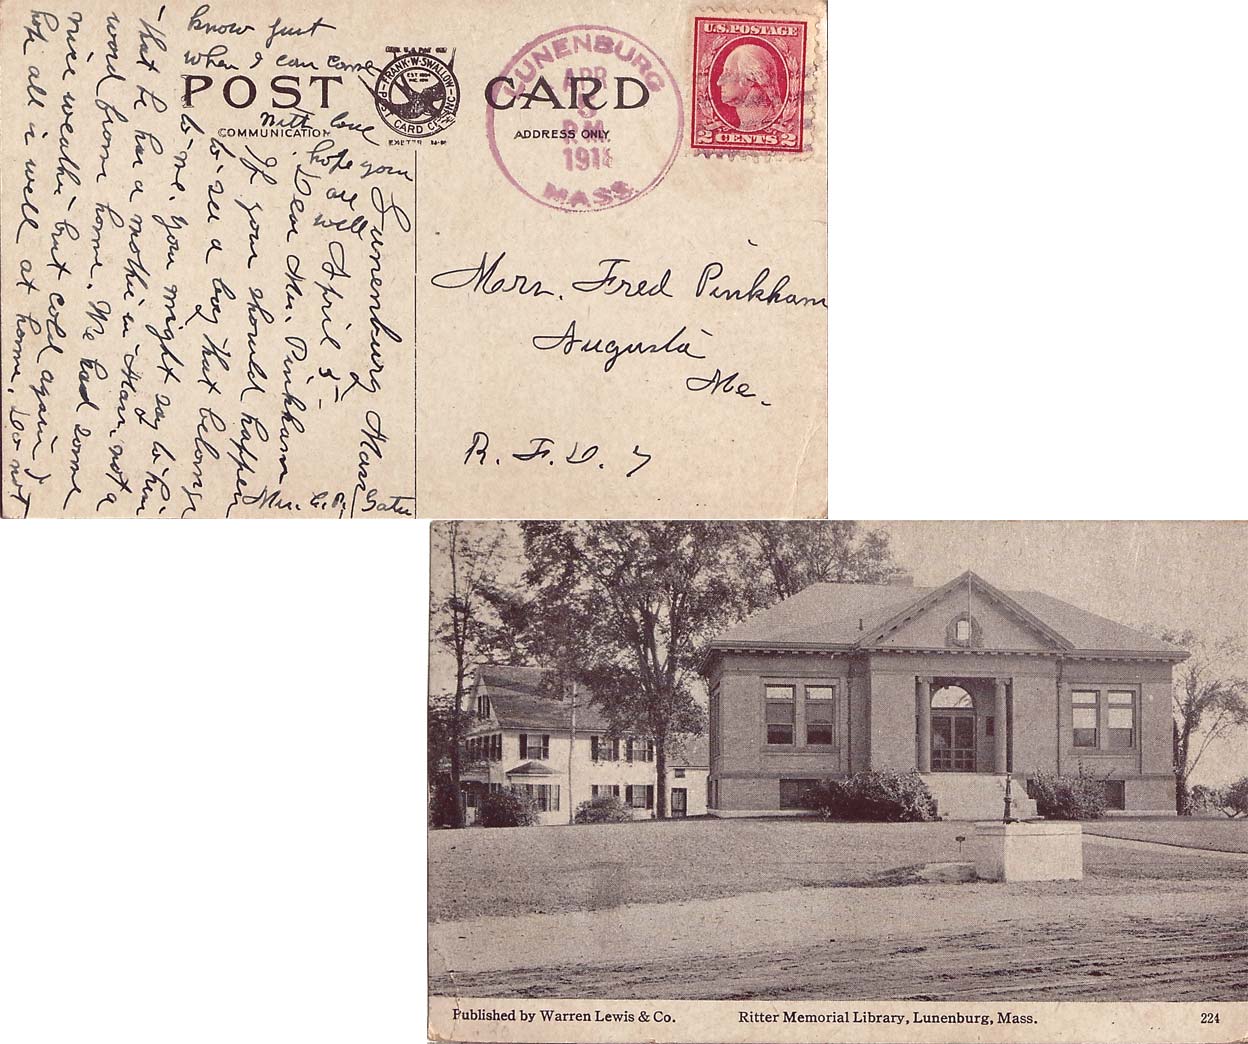 know just
when I can come
With love
hope you
are
well
Lunenburg Mass
April 5 -
Dear Mr. Pinkham
If you should happen
to see a boy that belongs
to me. You might say to him
that he has a mother in Mass. not a
word from home. We had some
nice weather but cold again I
hope all is well at home. Do not
POST CARD
COMMUNICATION
ADDRESS ONLY
FRANK·W·SWALLOW
EST 1894
INC. 1911
POST CARD CO. INC
EXETER N-H
LUNENBURG
APR
5
P.M.
191
MASS.
U.S. POSTAGE
2 CENTS 2
Fred Pinkham
Augusta
Me.
R. F. D. 7
Published by Warren Lewis & Co.
Ritter Memorial Library, Lunenburg, Mass.
224